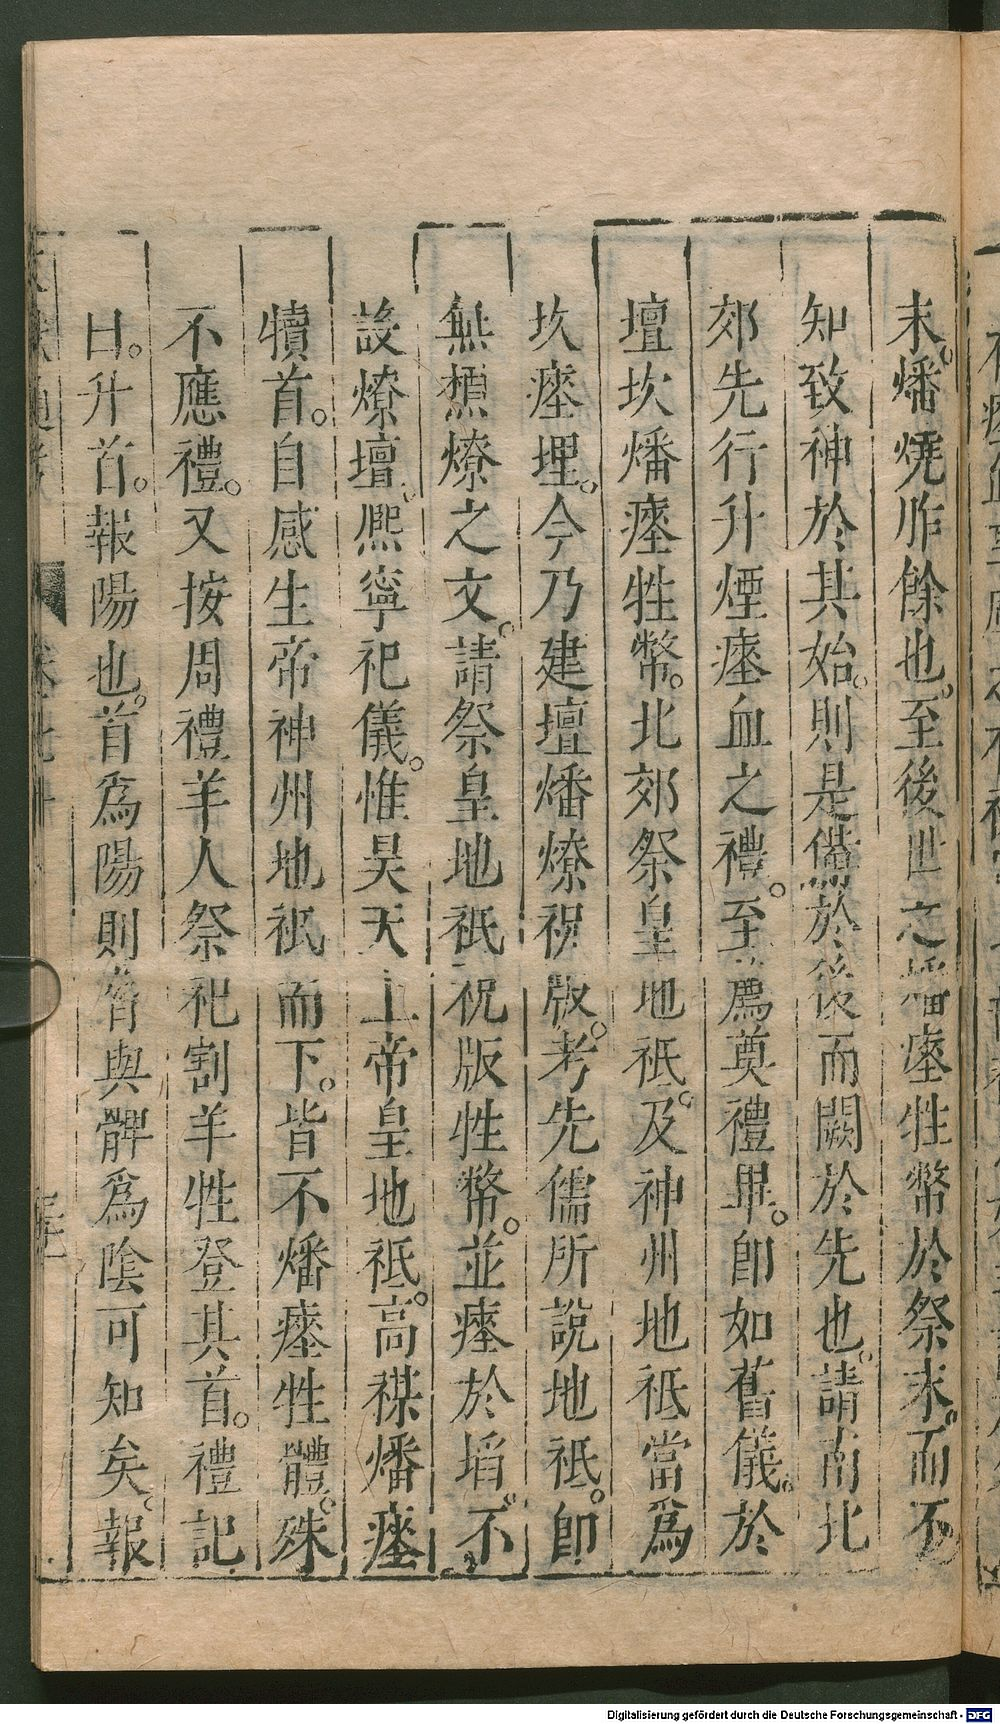 末。燔燒胙餘也。至後世之燔瘞牲幣於祭末。而不
知致神於其始。則是備於後而闕於先也。請南北
郊先行升煙瘞血之禮。至薦奠禮畢。卽如舊儀。於
壇坎燔瘞牲幣。北郊祭皇地祇。及神州地祇當爲
坎瘞埋。今乃建壇燔燎祝版。考先儒所說地祇。卽
無槱燎之文。請祭皇地祇祝版牲幣。並瘞於埳。不
設燎壇。熈寧祀儀。惟昊天上帝皇地祇。高禖燔瘞
犢首。自感生帝神州地祇而下。皆不燔瘞牲體。殊
不應禮。又按周禮羊人祭祀割羊牲登其首。禮記
曰。升首。報陽也。首爲陽則脅與髀爲陰可知矣。報
Digitalisierung gefördert durch die Deutsche Forschungsgemeinschaft - DFG